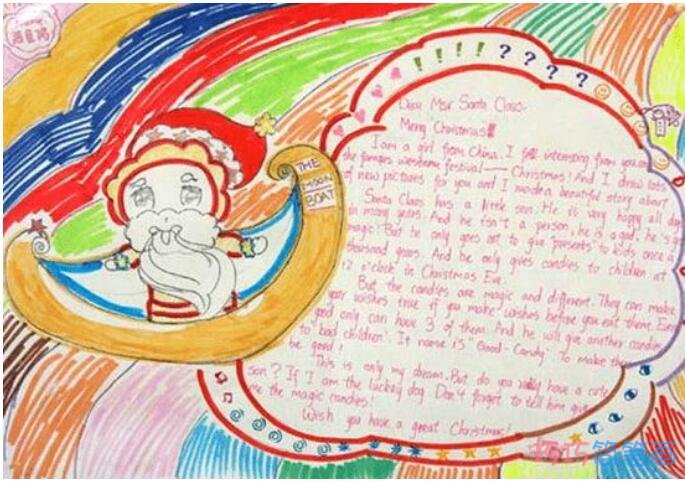 THE
MOON
BOAT
! ! ! ! ? ? ? ?
Dear Msr Santa Claus:
Merry Christmas!!!
I am a girl from China. I fell interesting from you and
the famous westerne festival——Christmas! And I drew lots
of new pictures for you and I made a beautiful story about
Santa Claus has a little son. He is very happy all day
in many years. And he isn't a person, he is a god, he's got
magic! But he only goes out to give "presents" to kids once a
thousand years. And he only gives candies to children at
12 o'clock in Christmas Eve.
But the candies are magic and different. They can make
your wishes true if you make wishes before you eat them. Every
good only can have 3 of them. And he will give another candies
to "bad children". It name is "Good-Candy". To make them
be good!
This is only my dream. But do you have a cute
son? If I am the lucky dog. Don't forget to tell him give
me the magic candies!
Wish you have a great Christmas!